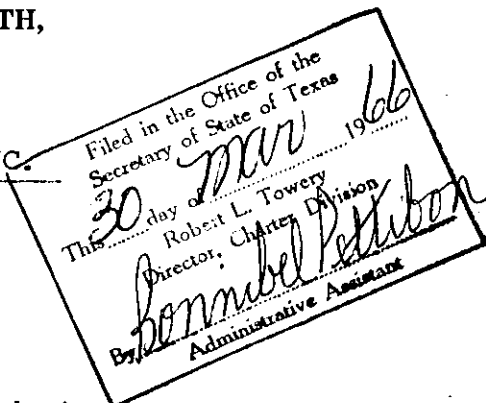 TH,
C.
Filed in the Office of the
Secretary of State of Texas
This 30 day of Mar 1966
Robert L. Towery
Director, Charter Division
By Bonnibel Pettibon
Administrative Assistant